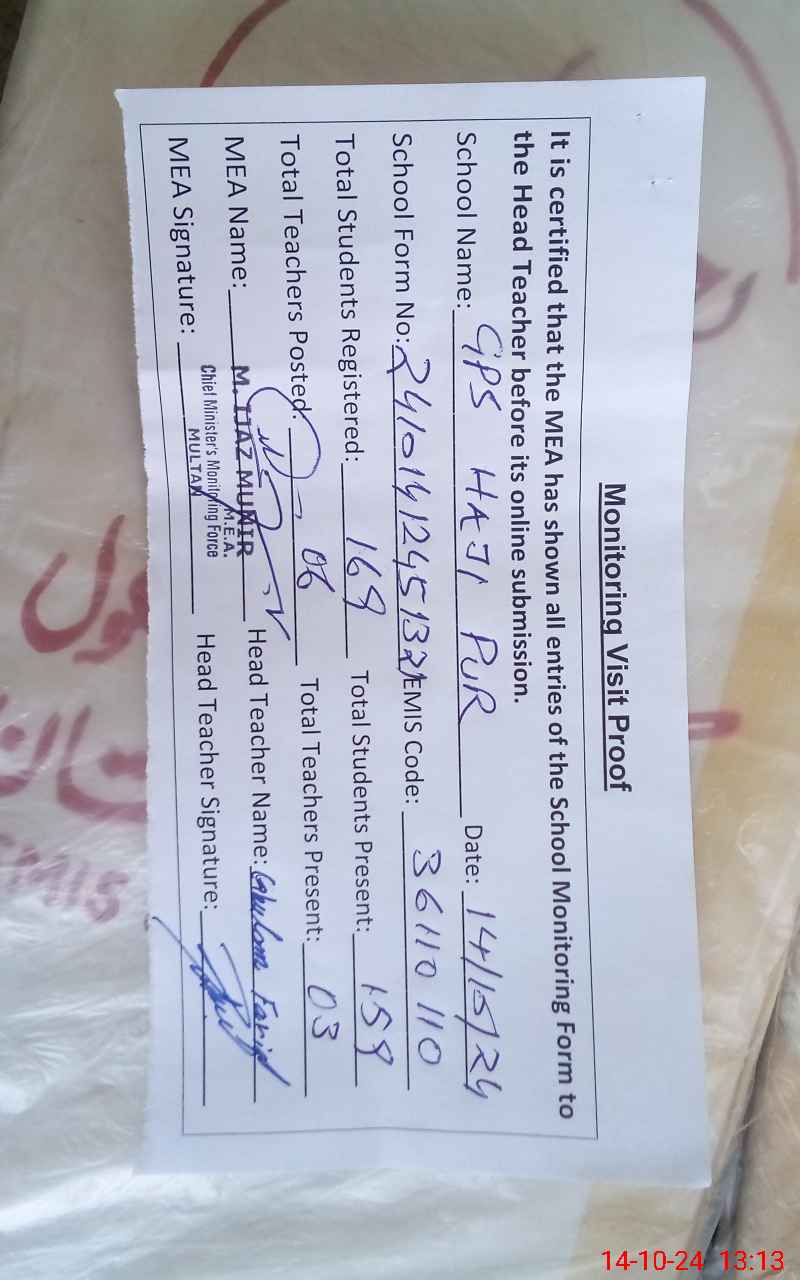 Monitoring Visit Proof
It is certified that the MEA has shown all entries of the School Monitoring Form to
the Head Teacher before its online submission.
School Name: GPS HAJI PUR Date: 14/10/24
School Form No: 2410141245132 EMIS Code: 36110110
Total Students Registered: 169 Total Students Present: 159
Total Teachers Posted: 06 Total Teachers Present: 03
MEA Name: M. IJAZ MUNIR Head Teacher Name: Ghulam Farid
M.E.A.
Chief Minister's Monitoring Force
MULTAN
MEA Signature: Head Teacher Signature:
EMIS
14-10-24 13:13